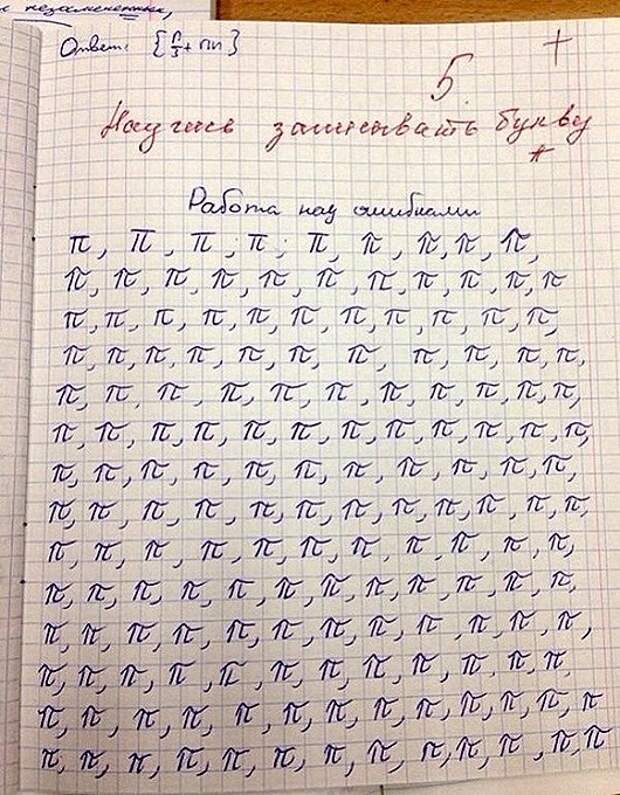 незамеченным,
Ответ: {π/3 + πn}
5. +
Научись записывать букву
π
Работа над ошибками
π, π, π, π, π, π, π, π, π,
π, π, π, π, π, π, π, π, π, π, π
π, π, π, π, π, π, π, π, π, π, π,
π, π, π, π, π, π, π, π, π, π, π,
π, π, π, π, π, π, π, π, π, π, π,
π, π, π, π, π, π, π, π, π, π, π, π,
π, π, π, π, π, π, π, π, π, π, π,
π, π, π, π, π, π, π, π, π, π, π, π,
π, π, π, π, π, π, π, π, π, π, π,
π, π, π, π, π, π, π, π, π, π, π, π,
π, π, π, π, π, π, π, π, π, π, π, π,
π, π, π, π, π, π, π, π, π, π, π, π
π, π, π, π, π, π, π, π, π, π, π, π, π
π, π, π, π, π, π, π, π, π, π, π, π, π